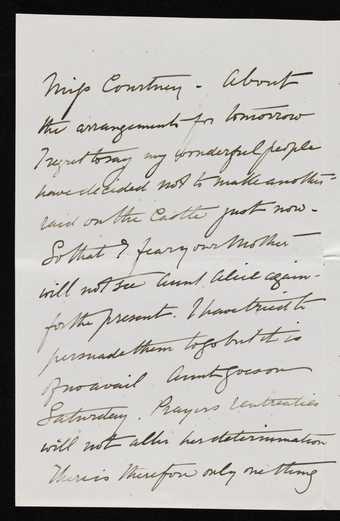 Miss Courtney - About
the arrangements for tomorrow
I regret to say my wonderful people
have decided not to make another
raid on the Castle just now -
So that I fear your Mother
will not see Aunt Alice again -
for the present. I have tried to
persuade them to go but it is
of no avail Aunt goes on
Saturday. Prayers entreaties
will not alter her determination
There is therefore only one thing